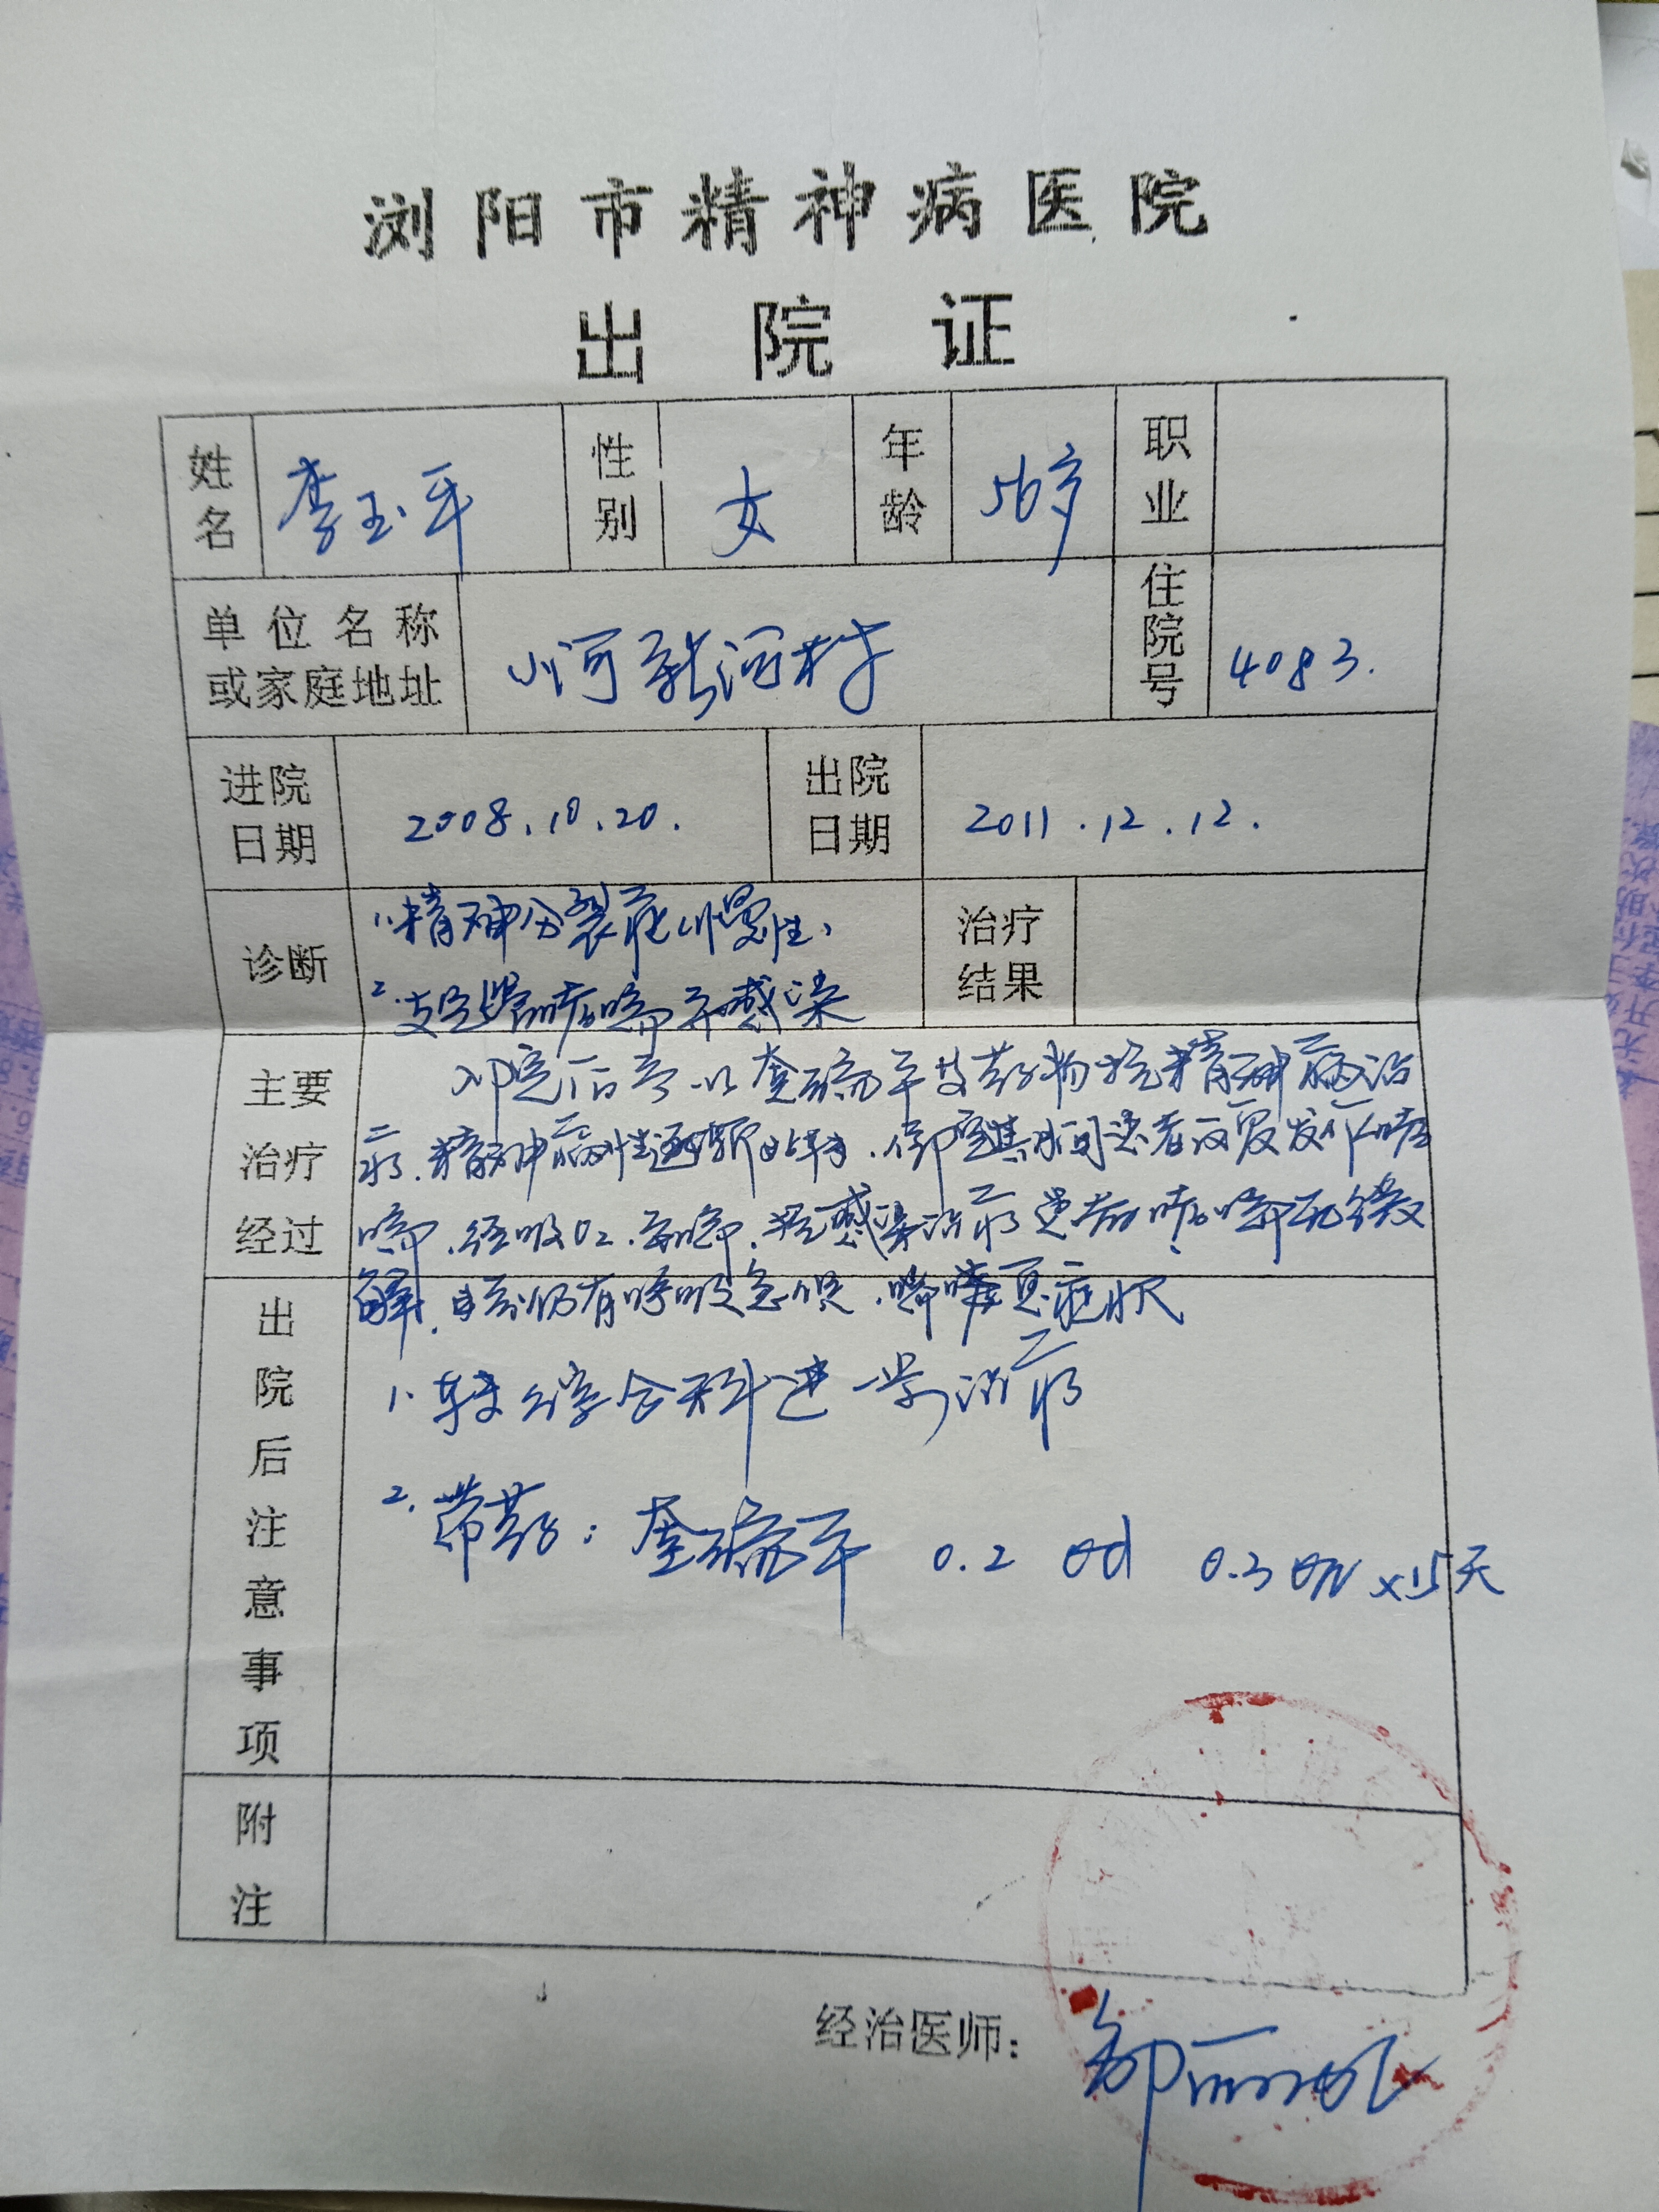 浏阳市精神病医院
出院证
姓名 李玉平 性别 女 年龄 56岁 职业
单位名称或家庭地址 小河新河村 住院号 4083.
进院日期 2008.10.20. 出院日期 2011.12.12.
诊断 1.精神分裂症(慢性)
2.支气管哮喘并感染
治疗结果
主要治疗经过
入院后予以奎硫平等药物抗精神病治
疗.精神病性逐渐好转.住院期间患者反复发作哮
喘.经吸O2.平喘.抗感染治疗患者哮喘无缓
解.目前仍有呼吸急促.喘嗽等症状
出院后注意事项
1.转综合科进一步治疗
2.带药:奎硫平 0.2 Qd 0.3 QN x15天
附注
经治医师: